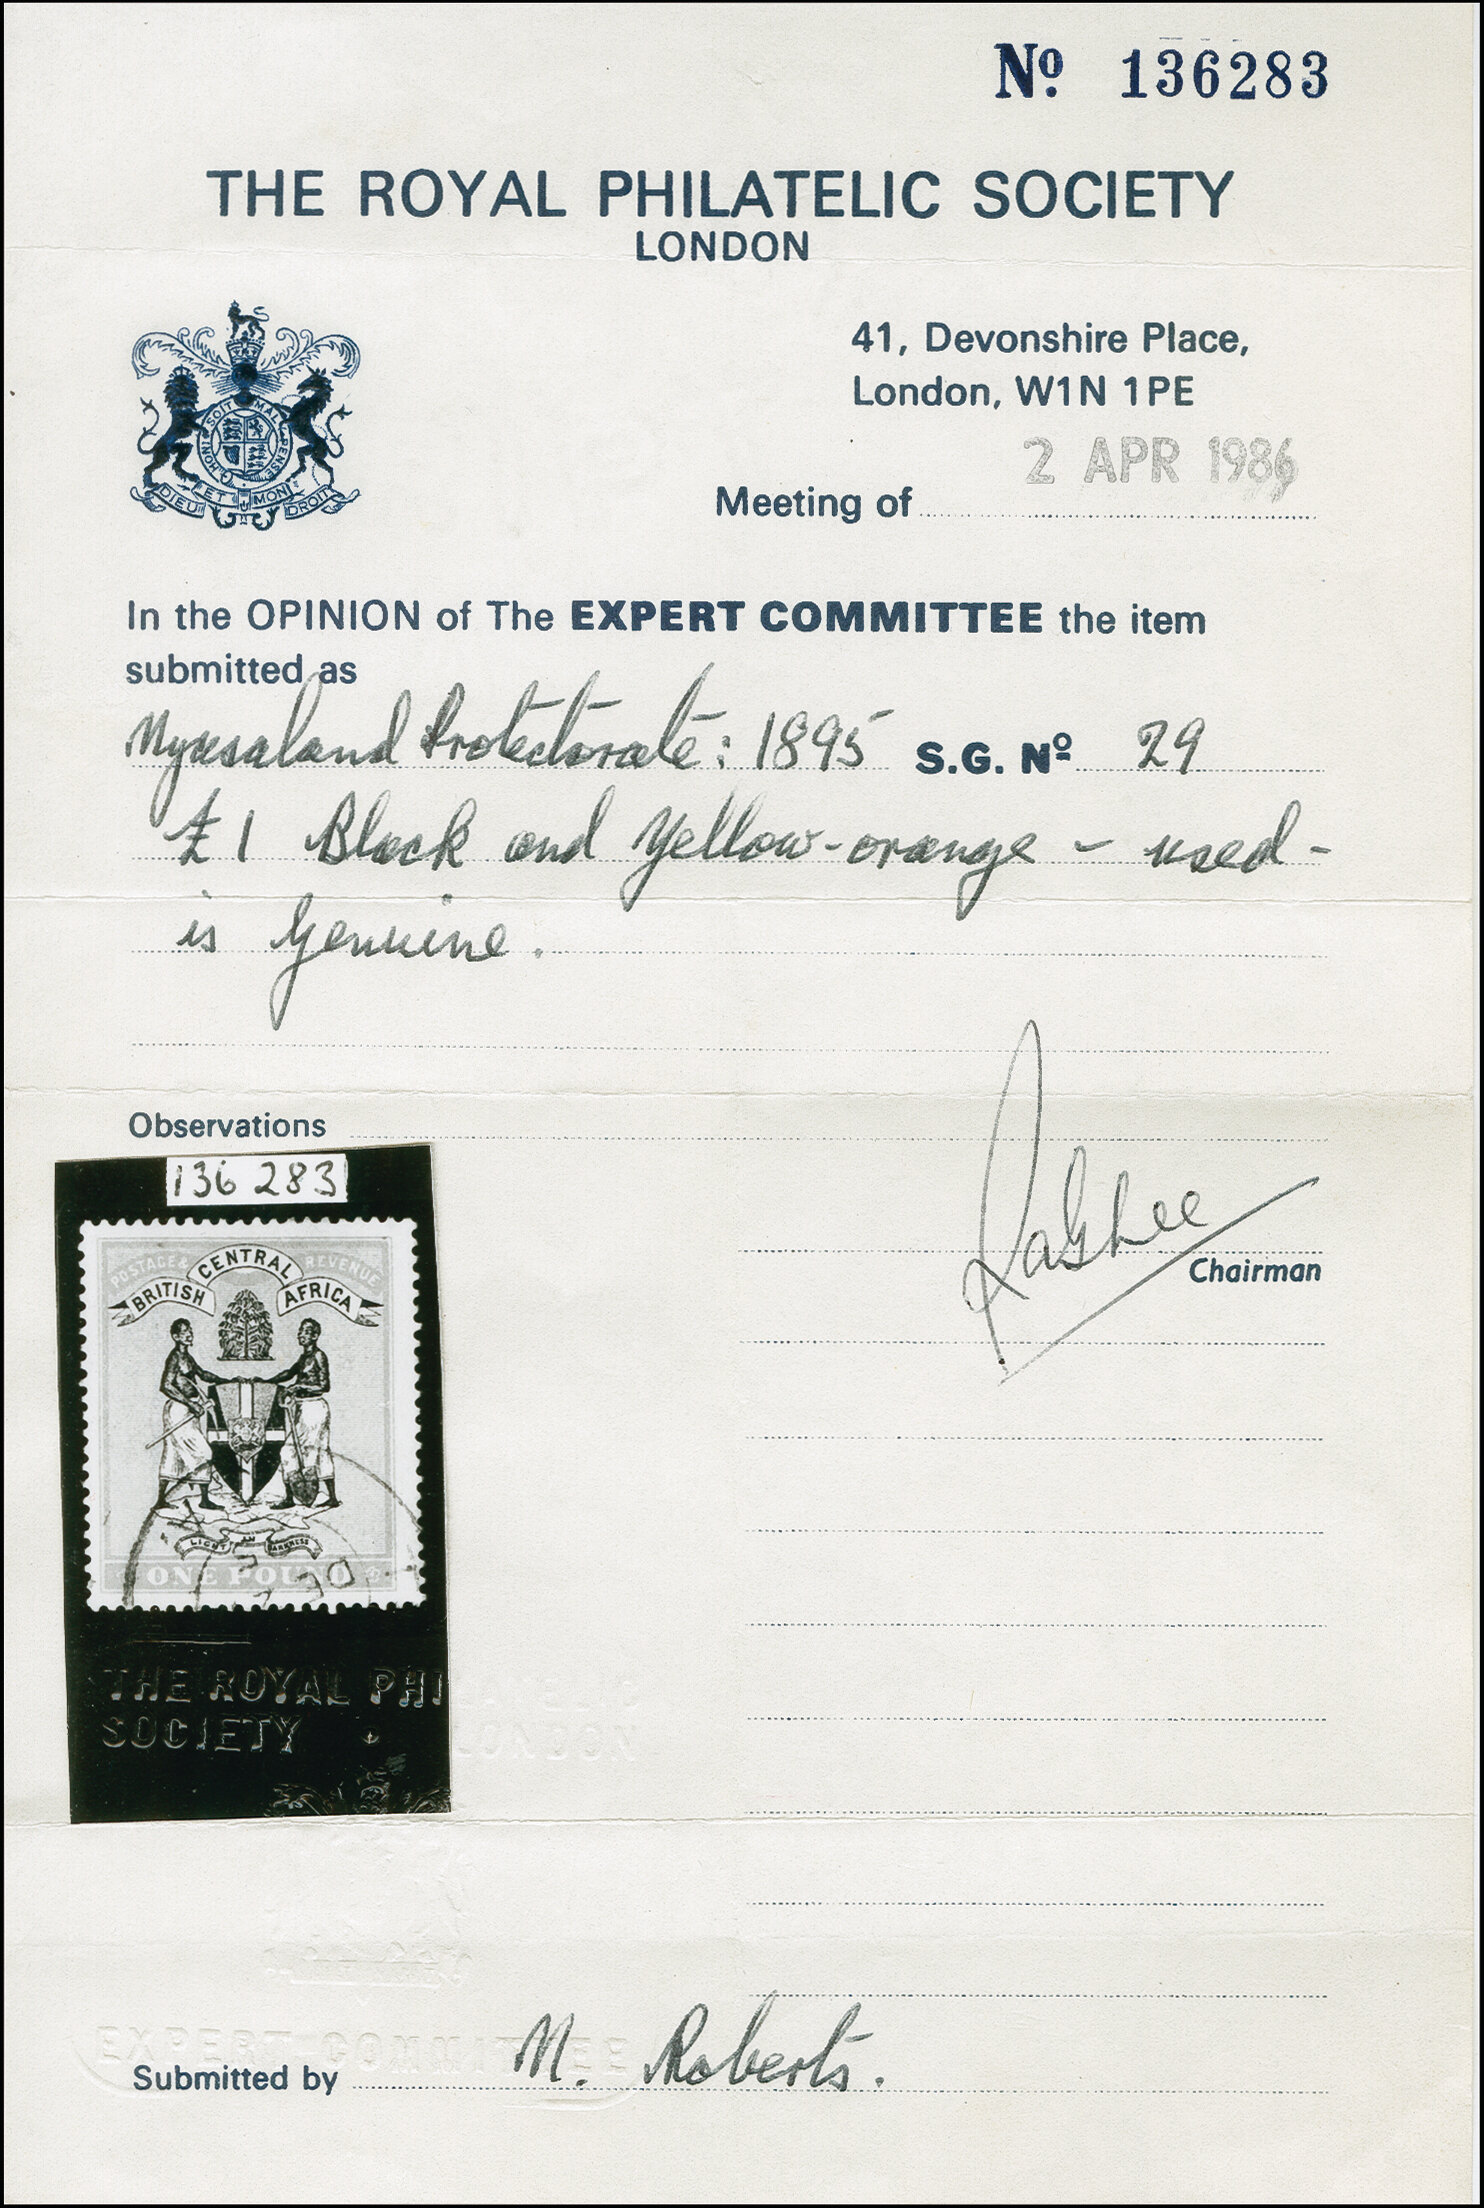 Nº 136283
THE ROYAL PHILATELIC SOCIETY
LONDON
41, Devonshire Place,
London, W1N 1PE
HONI SOIT QUI MAL Y PENSE
DIEU ET MON DROIT
2 APR 1986
Meeting of
In the OPINION of The EXPERT COMMITTEE the item
submitted as
Nyasaland Protectorate: 1895 S.G. Nº 29
£1 Black and Yellow-orange - used -
is genuine.
Observations
136 283
POSTAGE & REVENUE
BRITISH CENTRAL AFRICA
LIGHT IN DARKNESS
ONE POUND
Chairman
THE ROYAL PHILATELIC
SOCIETY LONDON
EXPERT COMMITTEE
Submitted by M. Roberts.